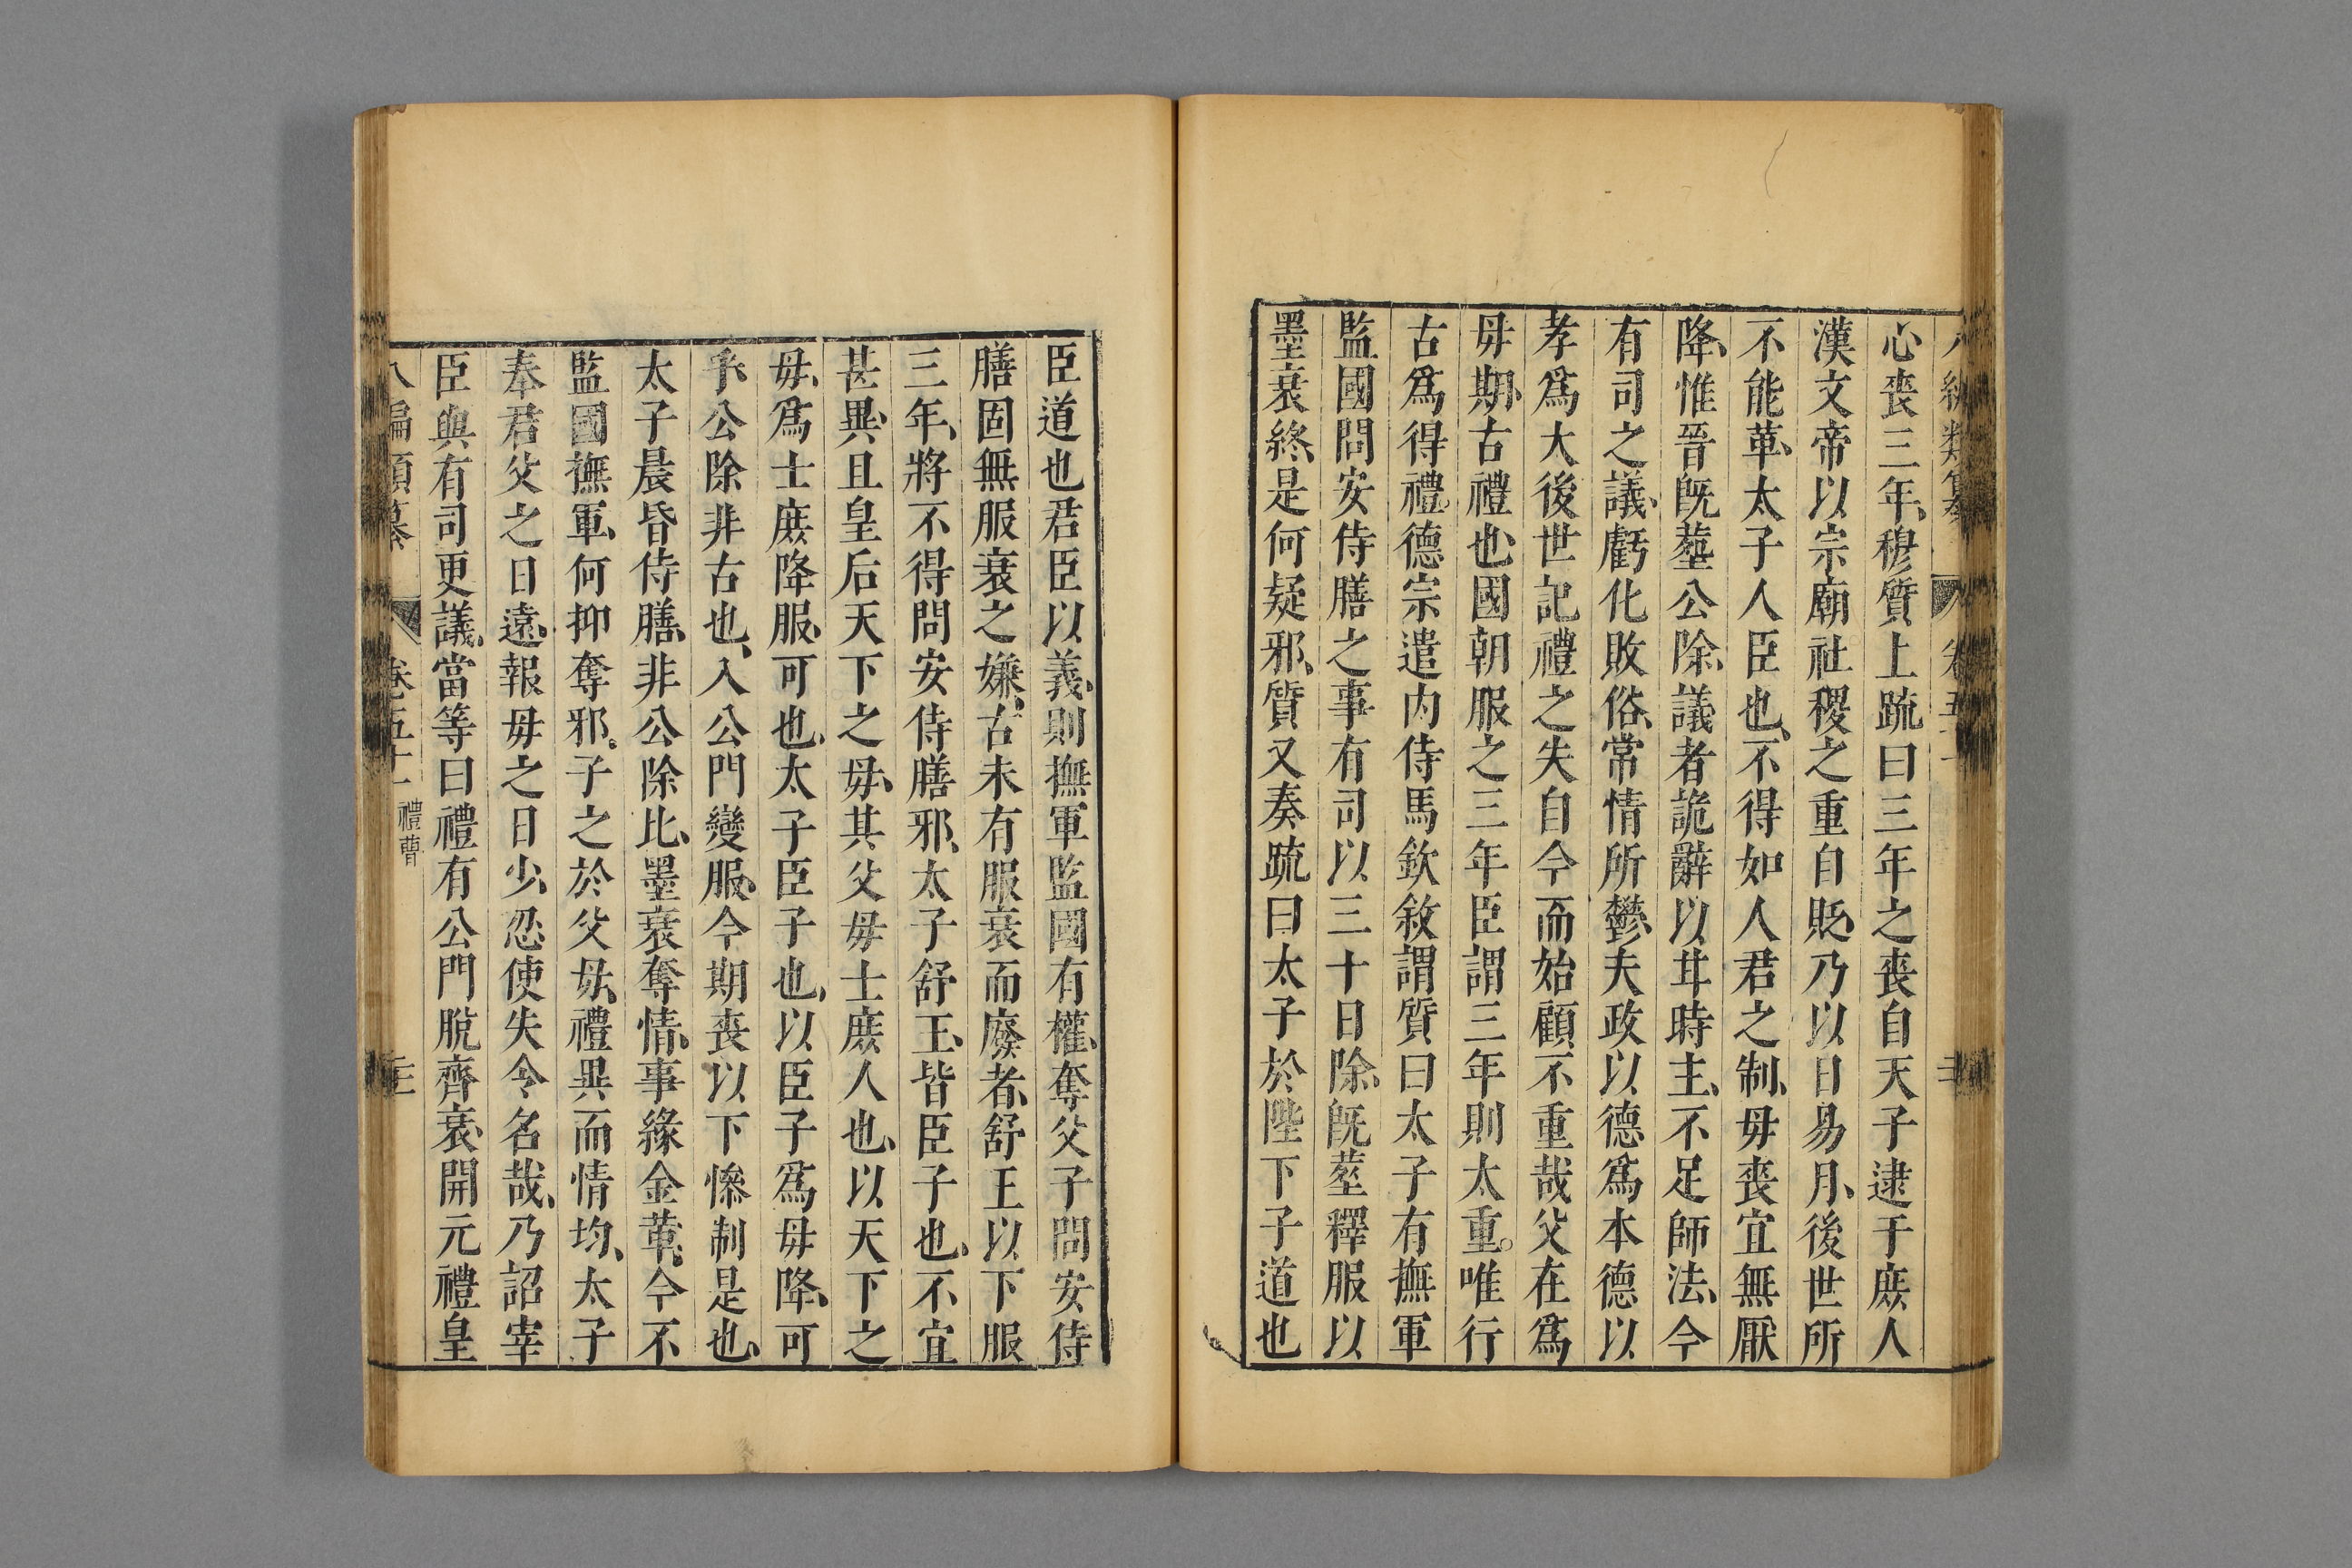 心喪三年、穆質上疏曰三年之喪自天子逮于庶人
漢文帝以宗廟社稷之重自貶、乃以日易月、後世所
不能革、太子人臣也、不得如人君之制、毋喪宜無厭
降、惟晉旣塟公除、議者詭辭以甘時主、不足師法、今
有司之議、虧化敗俗、常情所鬱、夫政以德爲本德以
孝爲大後世記禮之失自今而始顧不重哉父在爲
毋期、古禮也、國朝服之三年臣謂三年則太重。唯行
古爲得禮。德宗遣内侍馬欽敘謂質曰太子有撫軍
監國問安侍膳之事有司以三十日除、旣塟釋服以
墨衰終、是何疑邪、質又奏疏曰太子於陛下子道也
臣道也君臣以義、則撫軍監國有權、奪父子問安侍
膳固無服衰之嫌、古未有服衰而廢者、舒王以下服
三年、將不得問安侍膳邪、太子舒王、皆臣子也、不宜
甚異、且皇后天下之毋、其父毋士庶人也、以天下之
毋、爲士庶降服、可也、太子臣子也、以臣子爲毋降、可
乎、公除非古也、入公門變服、今期喪以下慘制是也、
太子晨昏侍膳、非公除比、墨衰奪情、事緣金革、今不
監國撫軍、何抑奪邪。子之於父毋、禮異而情均、太子
奉君父之日遠、報毋之日少、忍使失令名哉、乃詔宰
臣與有司更議、當等曰禮有公門脫齊衰、開元禮皇
八編類纂 卷五十一 禮曹